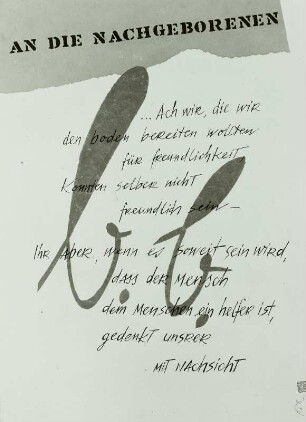 AN DIE NACHGEBORENEN
... Ach wir, die wir
den boden bereiten wollten
für freundlichkeit
Konnten selber nicht
freundlich sein –
Ihr aber, wenn es soweit sein wird,
dass der Mensch
dem Menschen ein helfer ist,
gedenkt unsrer
MIT NACHSICHT
b.b.